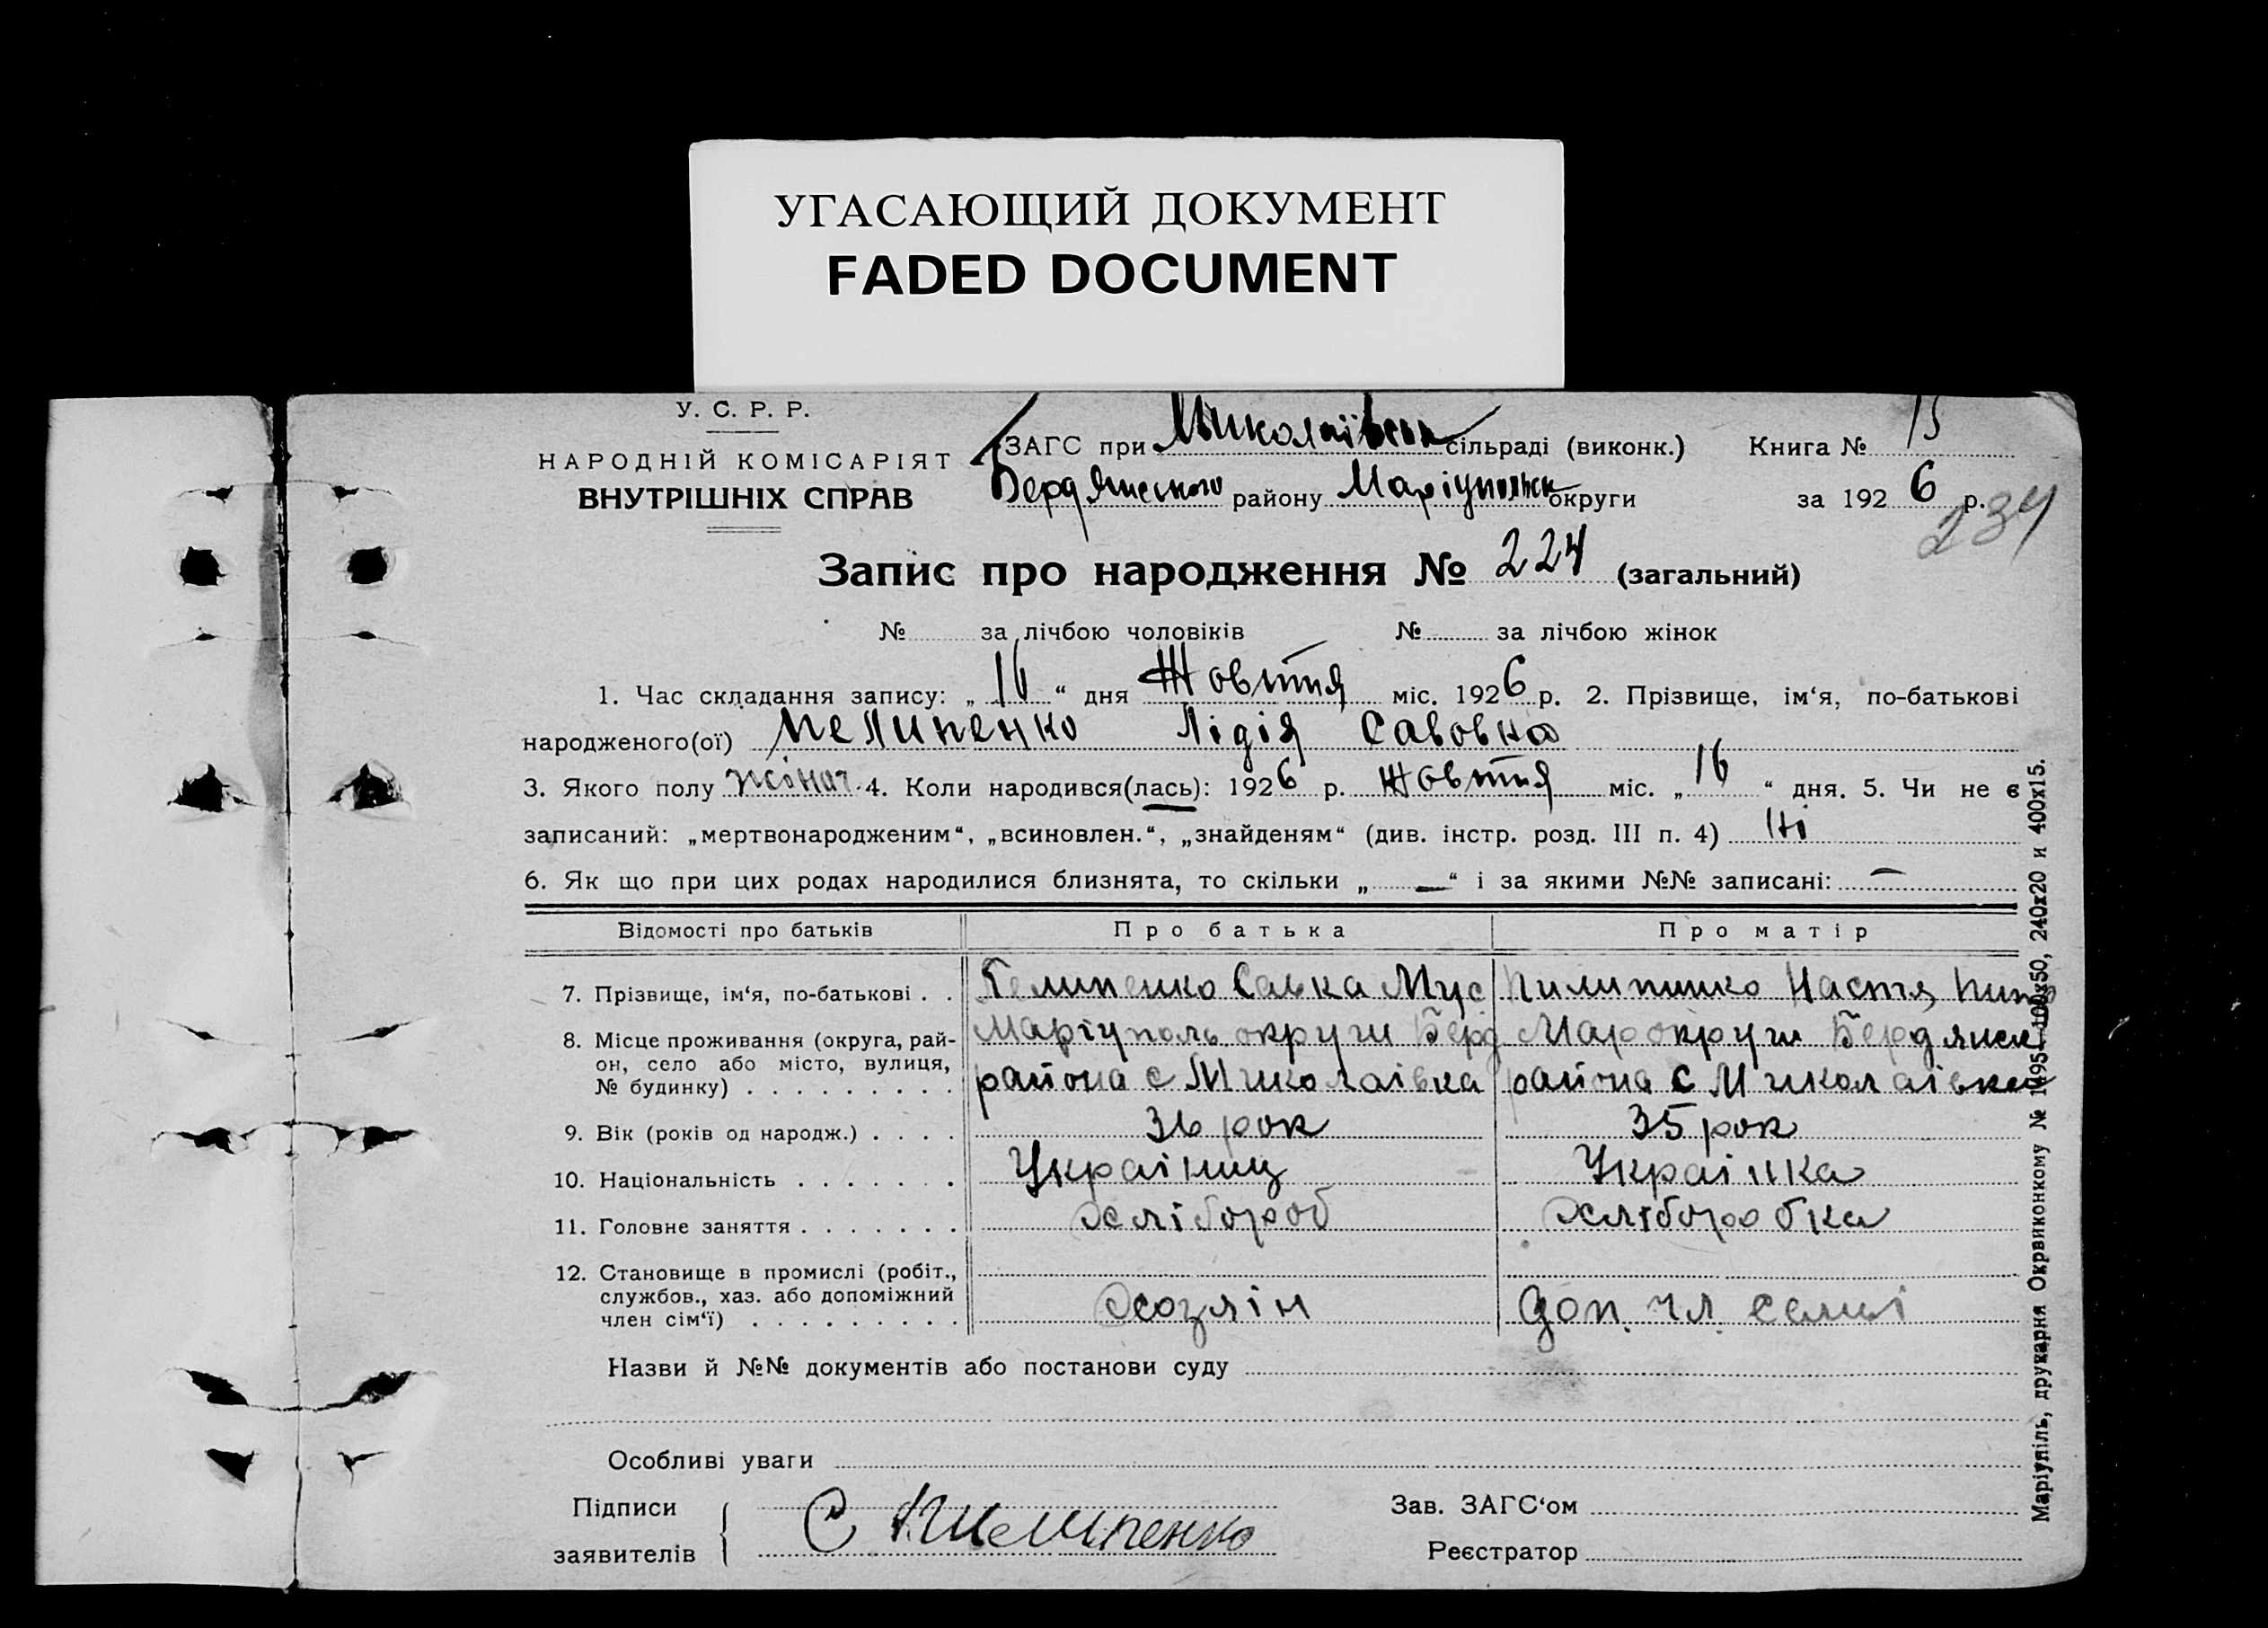 УГАСАЮЩИЙ ДОКУМЕНТ
FADED DOCUMENT
У. С. Р. Р.
НАРОДНІЙ КОМІСАРІЯТ
ВНУТРІШНІХ СПРАВ
ЗАГС при Миколаївськ сільраді (виконк.) Книга № 15
Бердянського району Маріупольск округи за 1926 р.
234
Запис про народження № 224 (загальний)
№ за лічбою чоловіків № за лічбою жінок
1. Час складання запису: „16“ дня Жовтня міс. 1926 р. 2. Прізвище, ім‘я, по-батькові
народженого(ої) Пелипенко Лідія Савовна
3. Якого полу жіноч. 4. Коли народився(лась): 1926 р. Жовтня міс. „16“ дня. 5. Чи не є
записаний: „мертвонародженим“, „всиновлен.“, „знайденям“ (див. інстр. розд. III п. 4) Ні
6. Як що при цих родах народилися близнята, то скільки „—“ і за якими №№ записані: —
Відомості про батьків Про батька Про матір
7. Прізвище, ім‘я, по-батькові . . Пелипенко Савка Мус Пилипинко Настя
8. Місце проживання (округа, рай- Маріуполь округи Берд Мар округи Бердянск
он, село або місто, вулиця, района с Миколаівка района с Миколаівка
№ будинку) . . . . . . . . .
9. Вік (років од народж.) . . . . 36 рок 35 рок
10. Національність . . . . . . . Украінец Украінка
11. Головне заняття . . . . . . . Хлібороб Хліборобка
12. Становище в промислі (робіт.,
службов., хаз. або допоміжний Хозяін доп. чл. семьі
член сім‘ї) . . . . . . . . .
Назви й №№ документів або постанови суду
Особливі уваги
Підписи С Пелипенко Зав. ЗАГС‘ом
заявителів Реєстратор
Маріупіль, друкарня Окрвиконкому № 1495—100x50, 240x20 и 400x15.